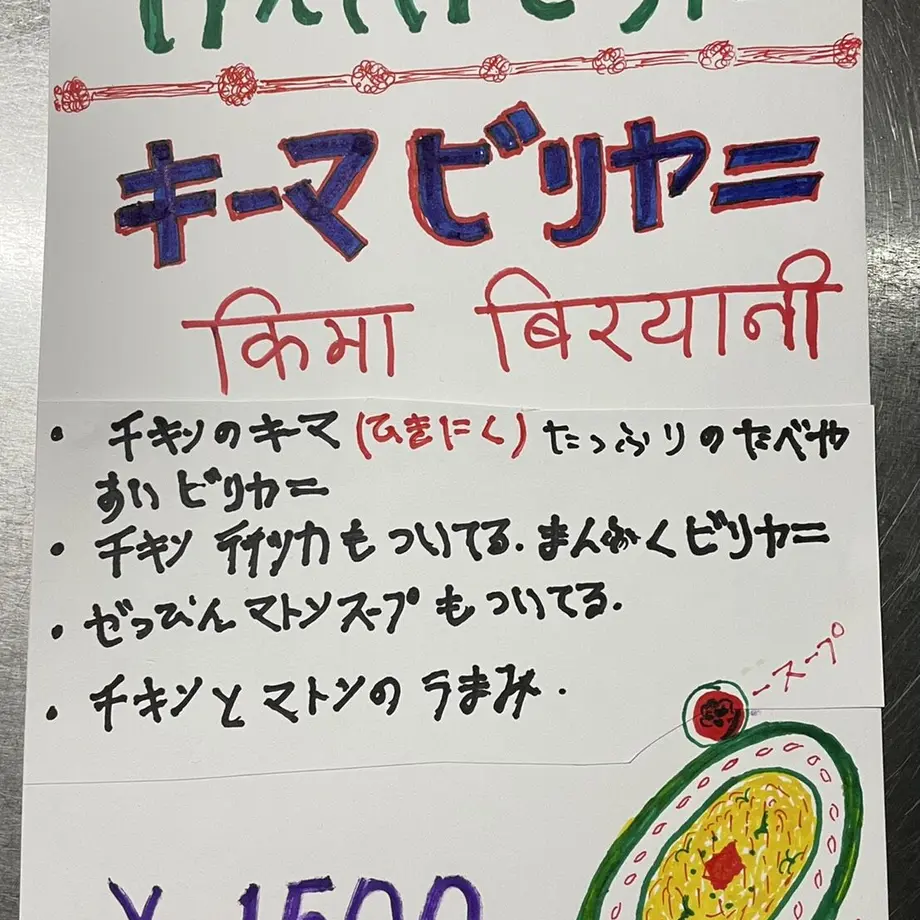 キーマ ビリヤニ
किमा बिरयानी
・ チキンのキーマ (ひきにく) たっぷりのたべや
すい ビリヤニ
・ チキン テイッカ も ついてる. まんぷく ビリヤニ
・ ぜっぴん マトン スープ も ついてる.
・ チキン と マトン の うまみ.
スープ
¥ 1500